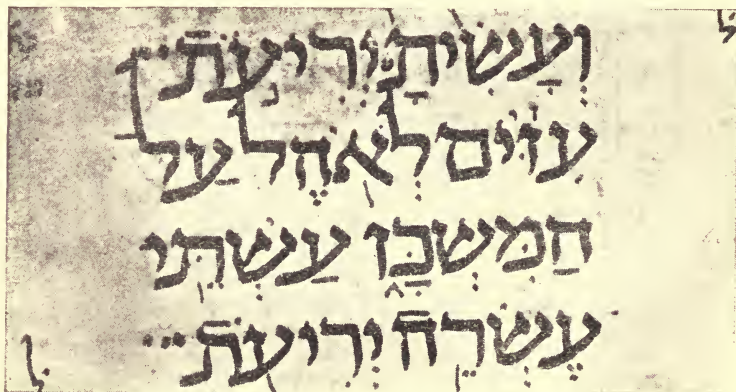 וְעָשִׂיתָ יְרִיעֹ֣ת
עִזִּ֔ים לְאֹ֖הֶל עַל
הַמִּשְׁכָּ֑ן עַשְׁתֵּי
עֶשְׂרֵ֥ה יְרִיעֹ֖ת